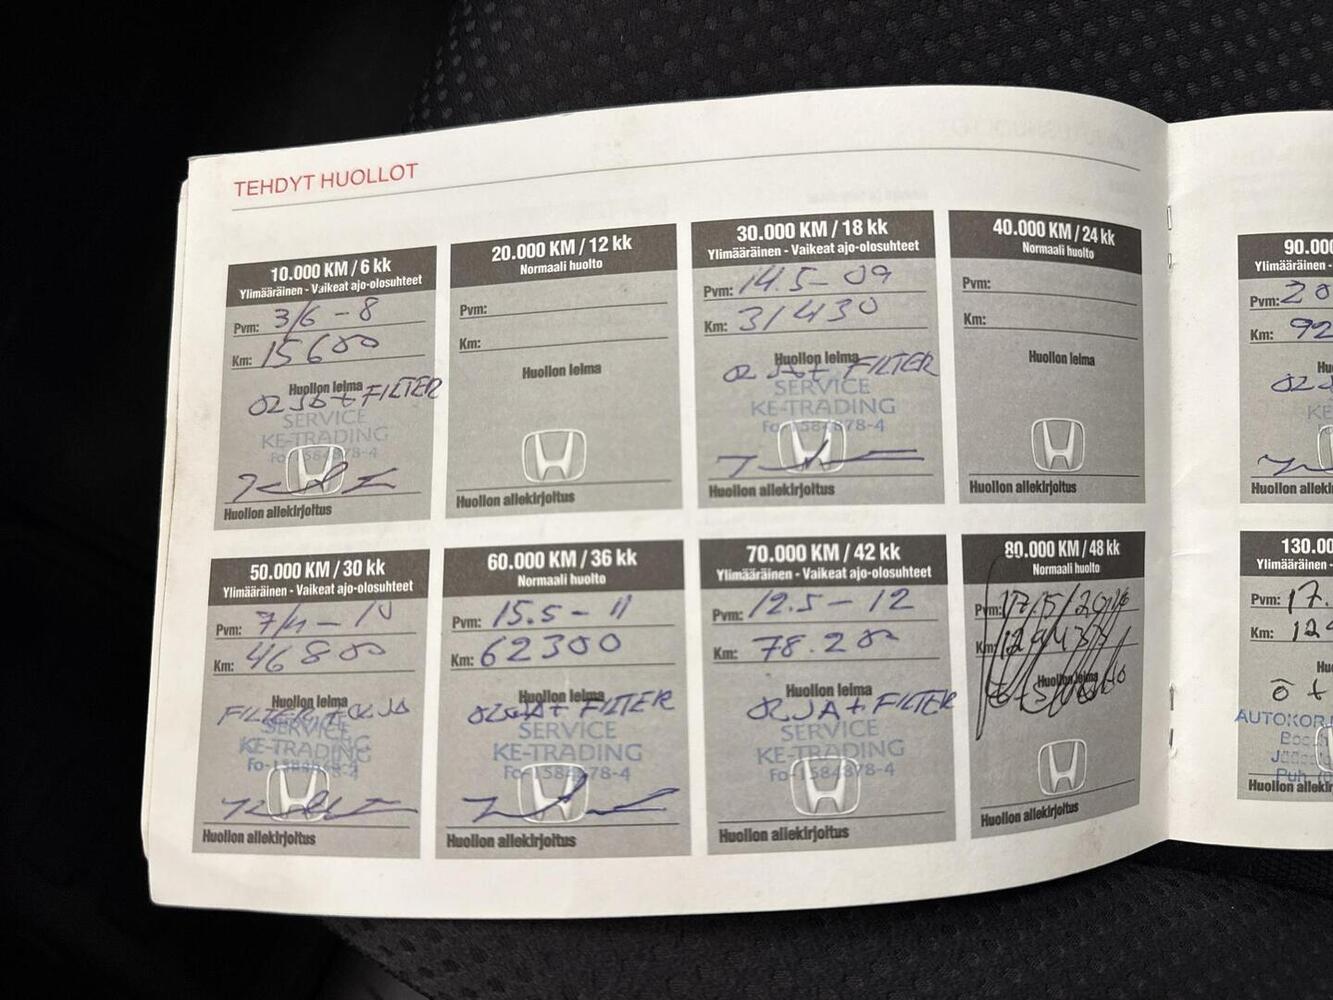 TEHDYT HUOLLOT
10.000 KM / 6 kk
Ylimääräinen - Vaikeat ajo-olosuhteet
Pvm: 3/6 - 8
Km: 15600
Huollon leima
+ FILTER
SERVICE
KE-TRADING
Huollon allekirjoitus
20.000 KM / 12 kk
Normaali huolto
Pvm:
Km:
Huollon leima
Huollon allekirjoitus
30.000 KM / 18 kk
Ylimääräinen - Vaikeat ajo-olosuhteet
Pvm: 14.5 - 09
Km: 31430
Huollon leima
+ FILTER
SERVICE
KE-TRADING
Fo-1584878-4
Huollon allekirjoitus
40.000 KM / 24 kk
Normaali huolto
Pvm:
Km:
Huollon leima
Huollon allekirjoitus
50.000 KM / 30 kk
Ylimääräinen - Vaikeat ajo-olosuhteet
Pvm:
Km: 46800
Huollon leima
FILTER +
SERVICE
KE-TRADING
Huollon allekirjoitus
60.000 KM / 36 kk
Normaali huolto
Pvm: 15.5 - 11
Km: 62300
Huollon leima
+ FILTER
SERVICE
KE-TRADING
Fo-1584878-4
Huollon allekirjoitus
70.000 KM / 42 kk
Ylimääräinen - Vaikeat ajo-olosuhteet
Pvm: 12.5 - 12
Km: 78.200
Huollon leima
ÖLJA + FILTER
SERVICE
KE-TRADING
Fo-1584878-4
Huollon allekirjoitus
80.000 KM / 48 kk
Normaali huolto
Pvm:
Km:
Huollon leima
Huollon allekirjoitus
90.00
Ylimääräinen -
Pvm: 20
Km: 92
Hu
KE
Huollon allekir
130.00
Ylimääräinen -
Pvm: 17.
Km: 129
Hu
ö +
AUTOKOR
Puh
Huollon allekir